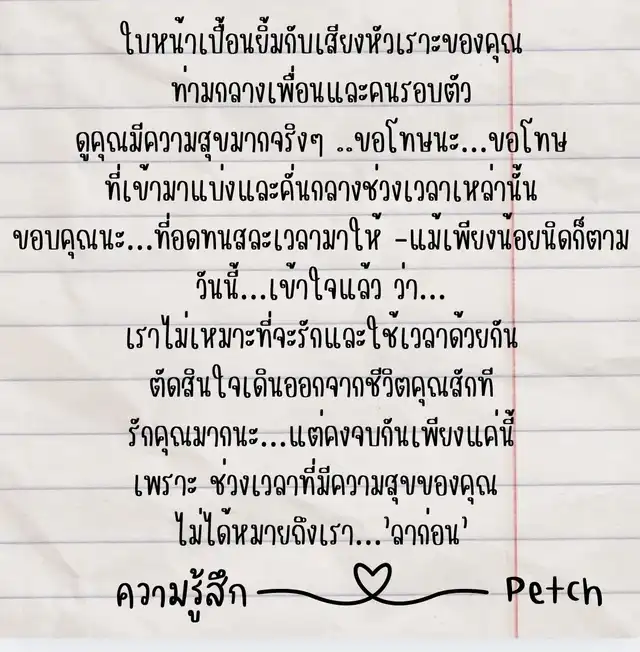 ใบหน้าเปื้อนยิ้มกับเสียงหัวเราะของคุณ
ท่ามกลางเพื่อนและคนรอบตัว
ดูคุณมีความสุขมากจริงๆ ..ขอโทษนะ...ขอโทษ
ที่เข้ามาแบ่งและคั่นกลางช่วงเวลาเหล่านั้น
ขอบคุณนะ...ที่อดทนสละเวลามาให้ -แม้เพียงน้อยนิดก็ตาม
วันนี้...เข้าใจแล้ว ว่า...
เราไม่เหมาะที่จะรักและใช้เวลาด้วยกัน
ตัดสินใจเดินออกจากชีวิตคุณสักที
รักคุณมากนะ...แต่คงจบกันเพียงแค่นี้
เพราะ ช่วงเวลาที่มีความสุขของคุณ
ไม่ได้หมายถึงเรา...'ลาก่อน'
ความรู้สึก Petch